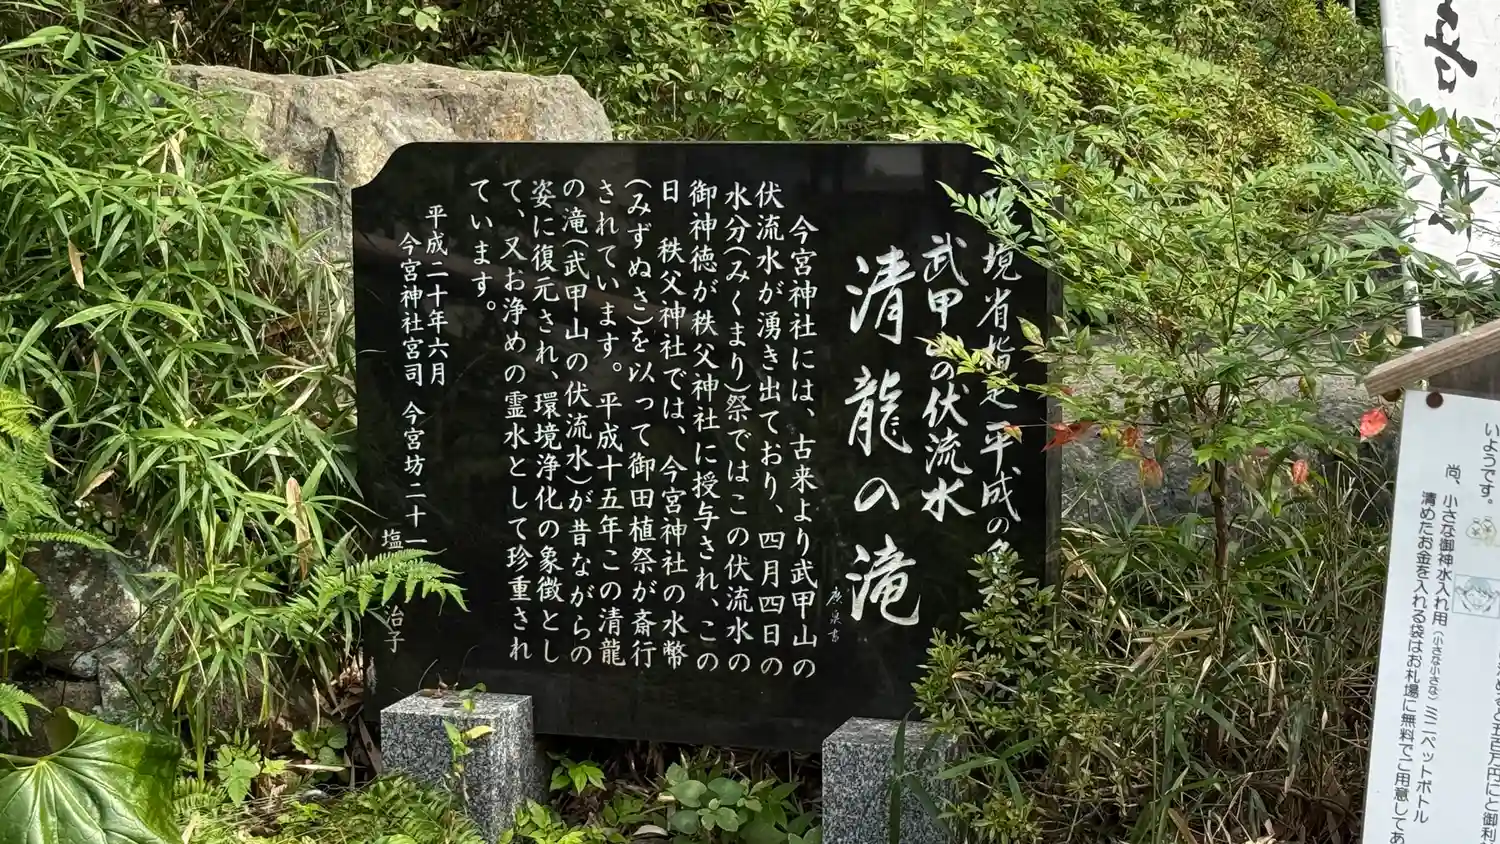 境省指定平成の
武甲山の伏流水
清龍の滝
今宮神社には、古来より武甲山の
伏流水が湧き出ており、四月四日の
水分(みくまり)祭ではこの伏流水の
御神徳が秩父神社に授与され、この
日 秩父神社では、今宮神社の水幣
(みずぬさ)を以って御田植祭が斎行
されています。平成十五年この清龍
の滝(武甲山の伏流水)が昔ながらの
姿に復元され、環境浄化の象徴とし
て、又お浄めの霊水として珍重され
ています。
平成二十年六月
今宮神社宮司 今宮坊二十一
塩 治子
いようです。
尚、小さな御神水入れ用(小さな小さな)ミニペットボトル
清めたお金を入れる袋はお札場に無料でご用意してあ